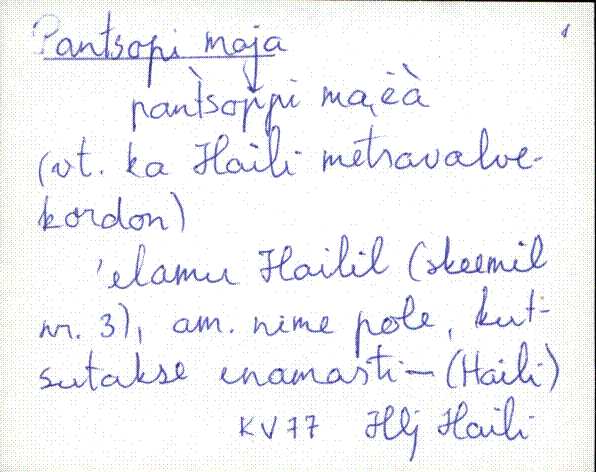 Pantsopi maja
pàǹtsoppi ma,èà
(vt. ka Haili metsavahve-
kordon)
'elamu Hailil (skeemil
nr. 3), am. nime pole, kut-
sutakse enamasti – (Haili)
KV 77 Hlj Haili